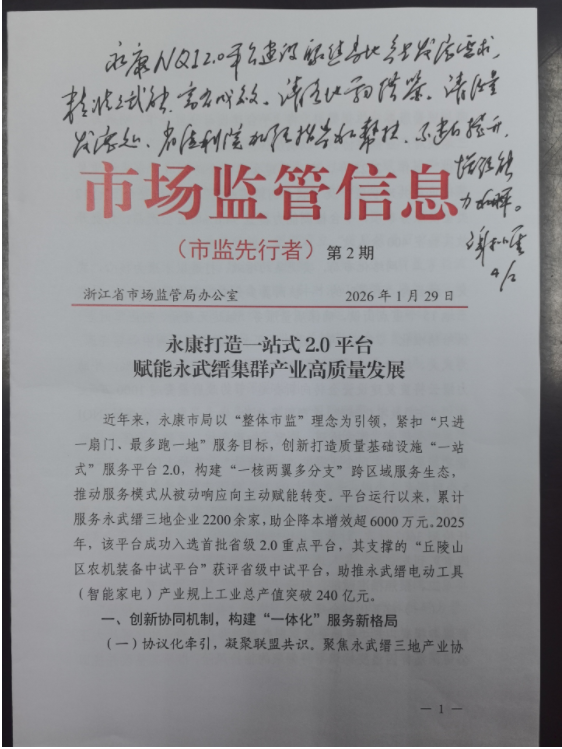 永康NQI2.0平台建设聚焦多地产业发展需求,
精准赋能,高有成效。请各地学习借鉴。请质量
发展处、省质科院加强指导和帮扶,不断提升、
增强能
力和水平。
4/2
市场监管信息
(市监先行者)第2期
浙江省市场监管局办公室 2026年1月29日
永康打造一站式2.0平台
赋能永武缙集群产业高质量发展
近年来,永康市局以“整体市监”理念为引领,紧扣“只进
一扇门、最多跑一地”服务目标,创新打造质量基础设施“一站
式”服务平台2.0,构建“一核两翼多分支”跨区域服务生态,
推动服务模式从被动响应向主动赋能转变。平台运行以来,累计
服务永武缙三地企业2200余家,助企降本增效超6000万元。2025
年,该平台成功入选首批省级2.0重点平台,其支撑的“丘陵山
区农机装备中试平台”获评省级中试平台,助推永武缙电动工具
(智能家电)产业规上工业总产值突破240亿元。
一、创新协同机制,构建“一体化”服务新格局
(一)协议化牵引,凝聚联盟共识。聚焦永武缙三地产业协
— 1 —